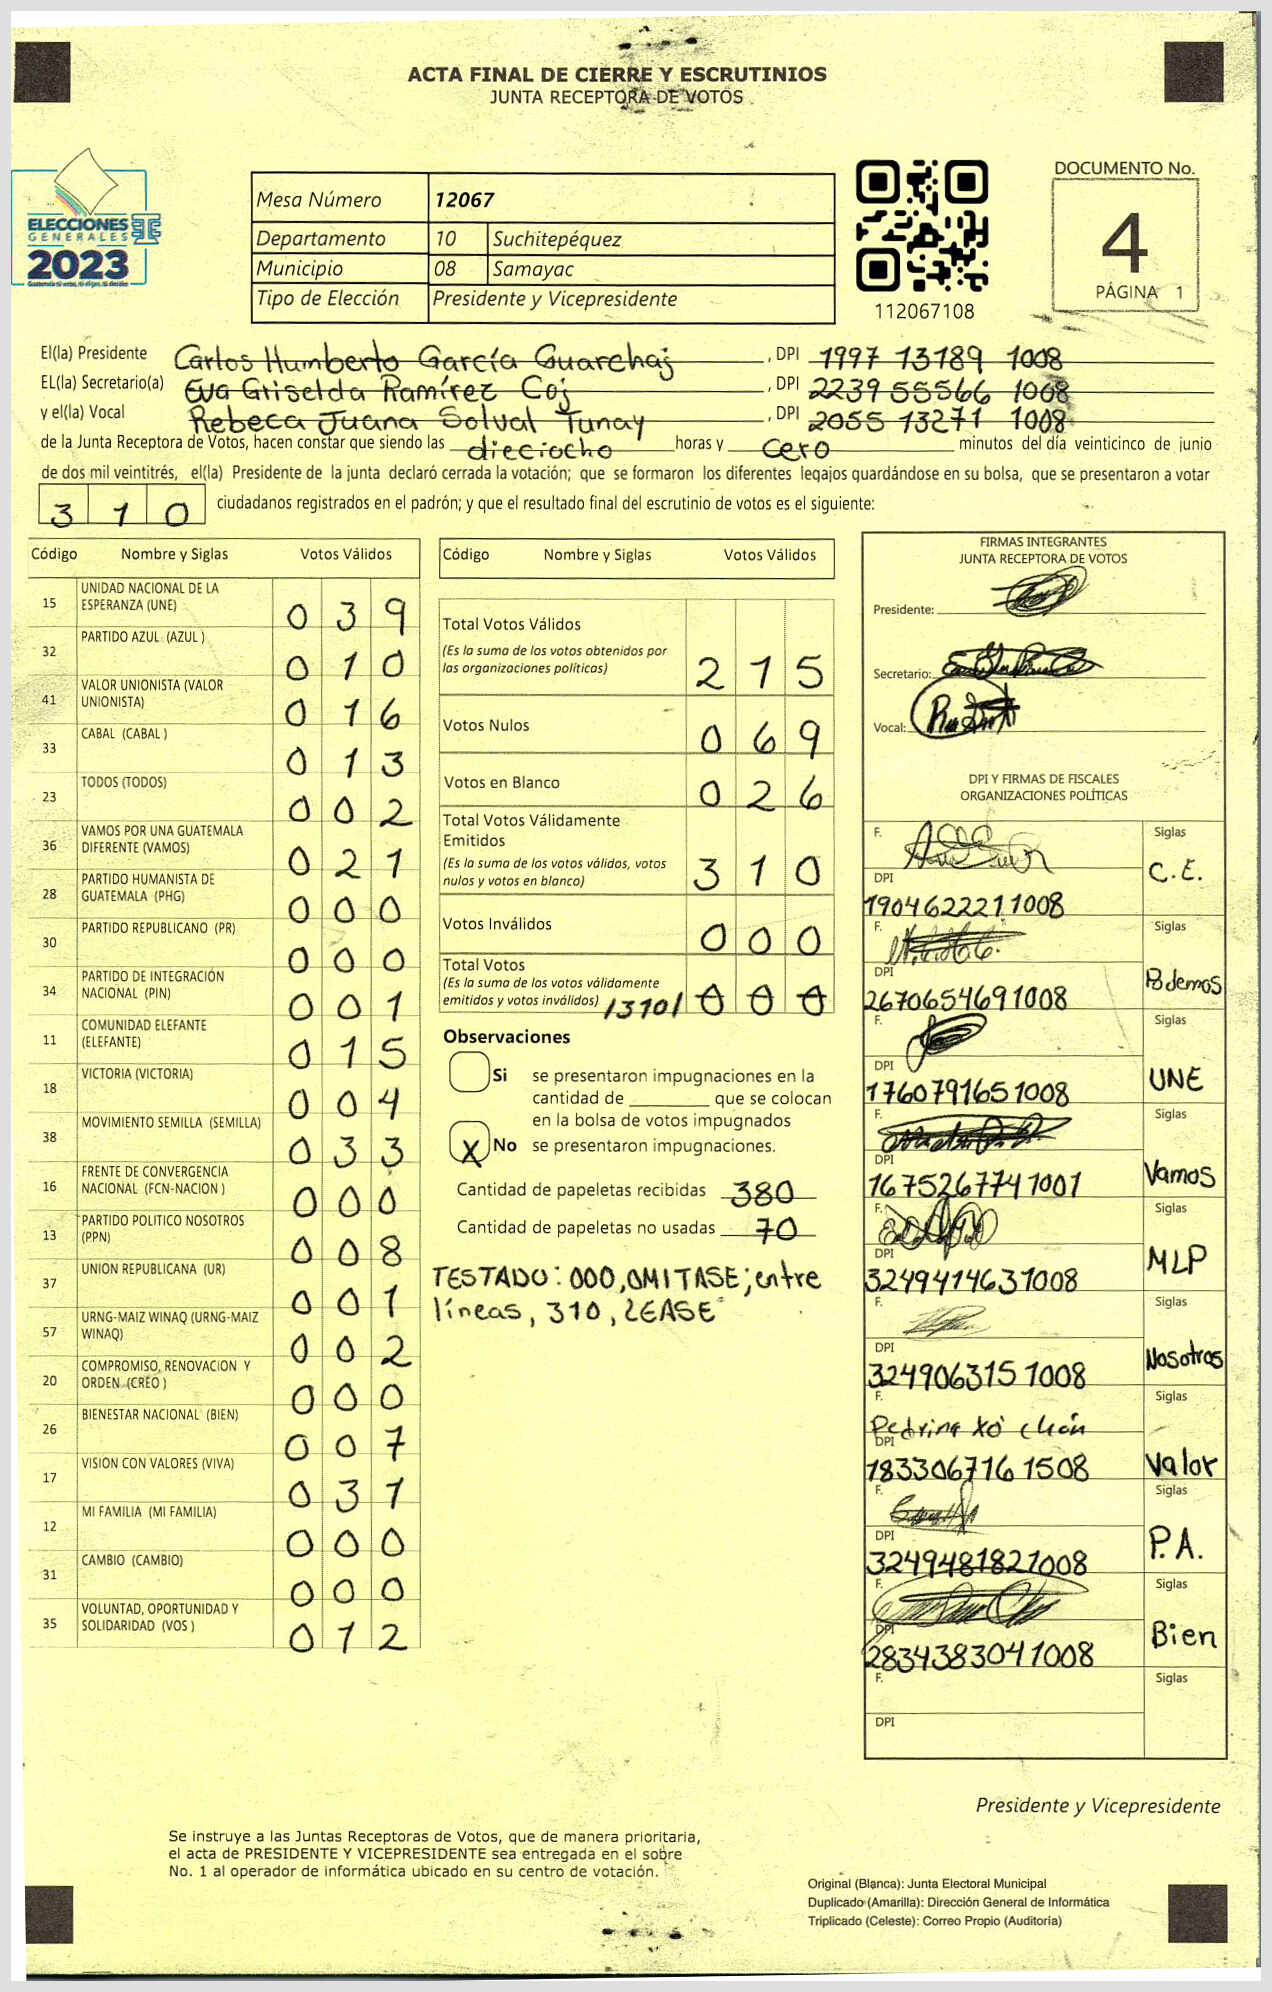 ACTA FINAL DE CIERRE Y ESCRUTINIOS
JUNTA RECEPTORA DE VOTOS
ELECCIONES
GENERALES
2023
Mesa Número 12067
Departamento 10 Suchitepéquez
Municipio 08 Samayac
Tipo de Elección Presidente y Vicepresidente
112067108
DOCUMENTO No.
4
PÁGINA 1
El(la) Presidente Carlos Humberto García Guarchaj, DPI 1997 13189 1008
EL(la) Secretario(a) Eva Griselda Ramírez Coj, DPI 2239 55566 1008
y el(la) Vocal Rebeca Juana Solval Tunay, DPI 2055 13271 1008
de la Junta Receptora de Votos, hacen constar que siendo las dieciocho horas y cero minutos del día veinticinco de junio
de dos mil veintitrés, el(la) Presidente de la junta declaró cerrada la votación; que se formaron los diferentes legajos quardándose en su bolsa, que se presentaron a votar
310 ciudadanos registrados en el padrón; y que el resultado final del escrutinio de votos es el siguiente:
Código Nombre y Siglas Votos Válidos
15 UNIDAD NACIONAL DE LA ESPERANZA (UNE) 039
32 PARTIDO AZUL (AZUL ) 010
41 VALOR UNIONISTA (VALOR UNIONISTA) 016
33 CABAL (CABAL ) 013
23 TODOS (TODOS) 002
36 VAMOS POR UNA GUATEMALA DIFERENTE (VAMOS) 021
28 PARTIDO HUMANISTA DE GUATEMALA (PHG) 000
30 PARTIDO REPUBLICANO (PR) 000
34 PARTIDO DE INTEGRACIÓN NACIONAL (PIN) 001
11 COMUNIDAD ELEFANTE (ELEFANTE) 015
18 VICTORIA (VICTORIA) 004
38 MOVIMIENTO SEMILLA (SEMILLA) 033
16 FRENTE DE CONVERGENCIA NACIONAL (FCN-NACION ) 000
13 PARTIDO POLITICO NOSOTROS (PPN) 008
37 UNION REPUBLICANA (UR) 001
57 URNG-MAIZ WINAQ (URNG-MAIZ WINAQ) 002
20 COMPROMISO, RENOVACION Y ORDEN (CREO ) 000
26 BIENESTAR NACIONAL (BIEN) 007
17 VISION CON VALORES (VIVA) 031
12 MI FAMILIA (MI FAMILIA) 000
31 CAMBIO (CAMBIO) 000
35 VOLUNTAD, OPORTUNIDAD Y SOLIDARIDAD (VOS ) 012
Código Nombre y Siglas Votos Válidos
Total Votos Válidos
(Es la suma de los votos obtenidos por
las organizaciones políticas) 215
Votos Nulos 069
Votos en Blanco 026
Total Votos Válidamente
Emitidos
(Es la suma de los votos válidos, votos
nulos y votos en blanco) 310
Votos Inválidos 000
Total Votos
(Es la suma de los votos válidamente
emitidos y votos inválidos) /310/ 000
Observaciones
Si se presentaron impugnaciones en la
cantidad de ________ que se colocan
en la bolsa de votos impugnados
X No se presentaron impugnaciones.
Cantidad de papeletas recibidas 380
Cantidad de papeletas no usadas 70
TESTADO: 000, OMITASE; entre
líneas, 310, LEASE
FIRMAS INTEGRANTES
JUNTA RECEPTORA DE VOTOS
Presidente:
Secretario:
Vocal:
DPI Y FIRMAS DE FISCALES
ORGANIZACIONES POLÍTICAS
F. Siglas
C.E.
DPI
1904622211008
F. Siglas
Podemos
DPI
2670654691008
F. Siglas
UNE
DPI
1760791651008
F. Siglas
Vamos
DPI
1675267741001
F. Siglas
MLP
DPI
3249414631008
F. Siglas
Nosotros
DPI
3249063151008
F. Siglas
Pedrina Xó Chón
Valor
DPI
1833067161508
F. Siglas
P.A.
DPI
3249481821008
F. Siglas
Bien
DPI
2834383041008
F. Siglas
DPI
Presidente y Vicepresidente
Se instruye a las Juntas Receptoras de Votos, que de manera prioritaria,
el acta de PRESIDENTE Y VICEPRESIDENTE sea entregada en el sobre
No. 1 al operador de informática ubicado en su centro de votación.
Original (Blanca): Junta Electoral Municipal
Duplicado (Amarilla): Dirección General de Informática
Triplicado (Celeste): Correo Propio (Auditoría)